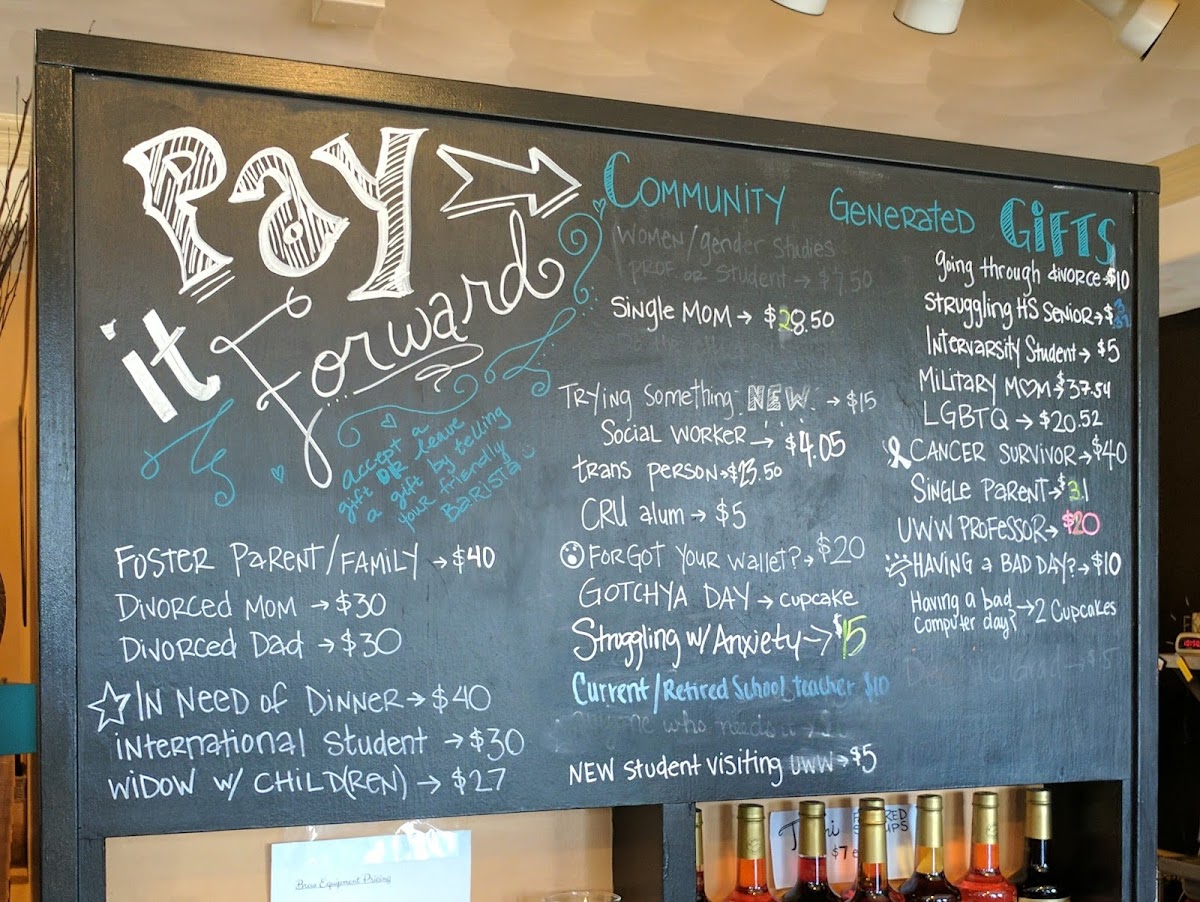 Pay
it Forward
accept a
gift OR leave
a gift by telling
your friendly
Barista
Foster Parent/Family → $40
Divorced Mom → $30
Divorced Dad → $30
In Need of Dinner → $40
international student → $30
widow w/ child(ren) → $27
Community Generated Gifts
women/gender studies
prof. or student → $7.50
Single Mom → $28.50
Trying something NEW → $15
Social Worker → $4.05
trans person → $23.50
CRU alum → $5
Forgot your wallet? → $20
Gotchya Day → cupcake
Struggling w/ Anxiety → $15
Current/Retired School teacher $10
anyone who needs it →
New student visiting UWW → $5
going through divorce → $10
Struggling HS Senior → $
Intervarsity Student → $5
Military Mom → $37.54
LGBTQ → $20.52
Cancer Survivor → $40
Single Parent → $3.1
UWW Professor → $20
Having a Bad Day? → $10
Having a bad
computer day? → 2 Cupcakes
→ $5
Brew Equipment Pricing
$7